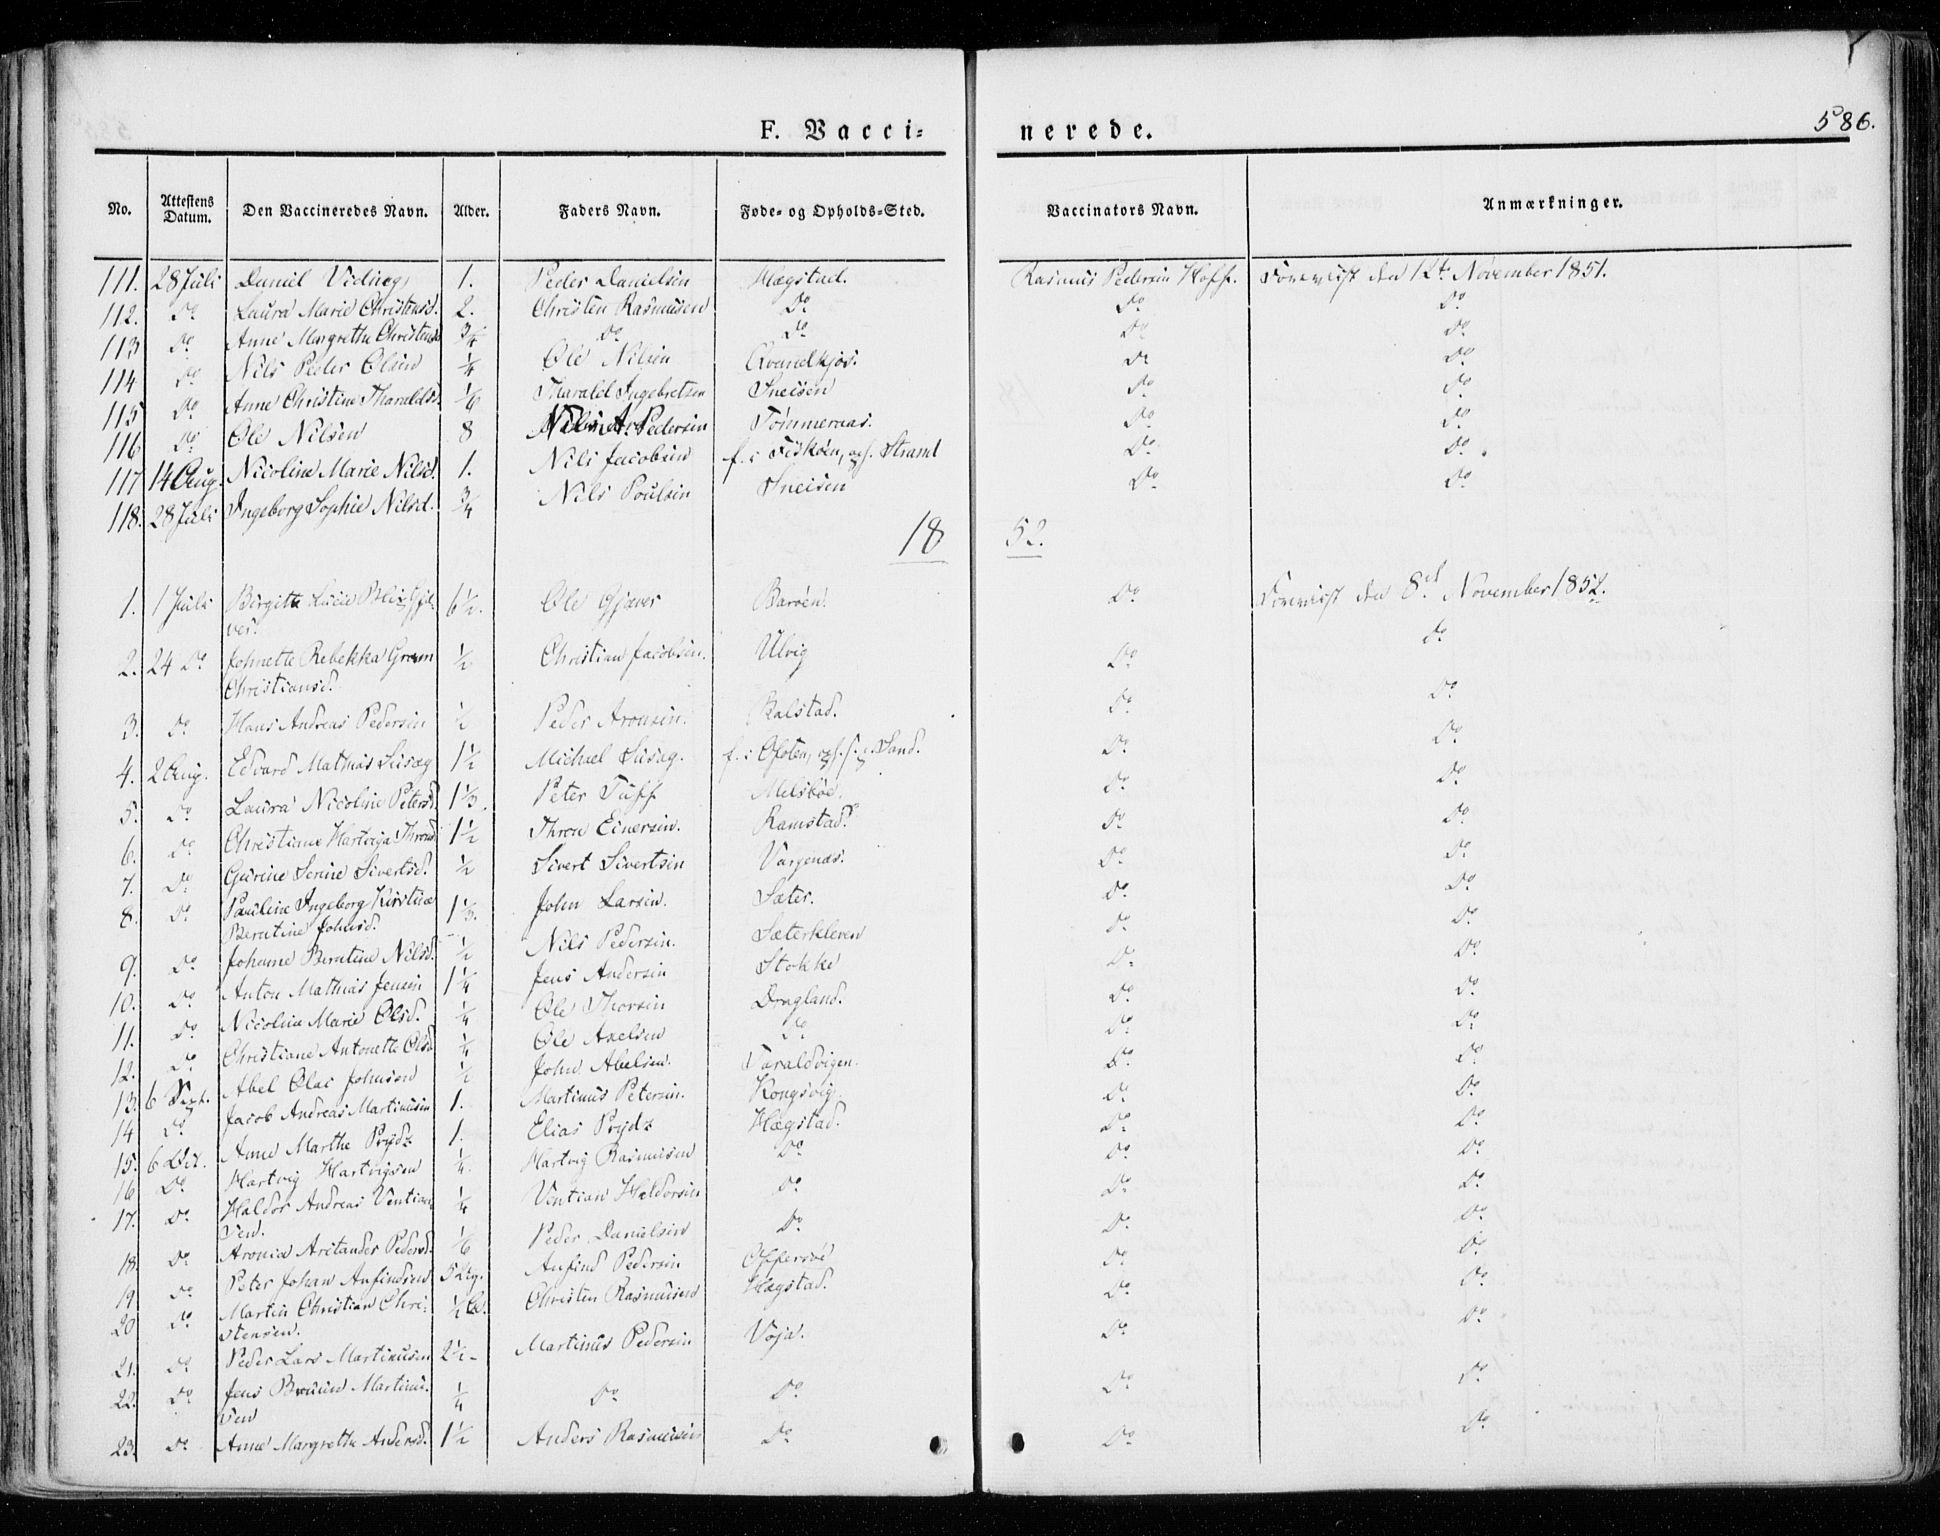 586.
F. Vacci= nerede.
No. Attestens Datum. Den Vaccineredes Navn. Alder. Faders Navn. Føde- og Opholds-Sted. Vaccinators Navn. Anmærkninger.
111. 28 Juli Daniel 1. Peder Danielsen Hægstad. Rasmus Pedersen Hoff. Forevist den 12t November 1851.
112. Do Laura Marie Christensd. 2. Christen Rasmussen Do Do Do
113 Do Anne Margrethe Christensd. 3/4 Do Do Do Do
114 Do Nils Peder Olsen 1/4 Ole Nilsen Kvandkjos. Do Do
115 Do Anne Christine Tharaldsd. 1/6 Tharald Ingebretsen Sneisen Do Do
116 Do Ole Nilsen 8 Nils A. Pedersen Tømmernæs. Do Do
117 14 Aug. Nicoline Marie Nilsd. 1. Nils Jacobsen f. i Fiskøen, oph. Strand Do Do
118. 28 Juli Ingeborg Sophie Nilsd. 3/4 Nils Poulsen Sneisen Do Do
18 52.
1. 1 Juli Birgitte Lucie Blix Gjæ-
ver. 6 1/2. Ole Gjæver Barøen. Do Forevist den 8de November 1852.
2. 24 Do Johnette Rebekka Gram
Christiansd. 1/2 Christian Jacobsen. Ulvig Do Do
3. Do Hans Andreas Pedersen 1/2 Peder Aronsen. Balstad. Do Do
4. 2 Aug. Edvard Mathias 1 1/2 Michael f. i Ofoten, oph. Sand. Do Do
5. Do Laura Nicoline Petersd. 1 1/3. Peter Tuff Melsbøe. Do Do
6. Do Christiane Hartviga Thronsd. 1 1/2 Thron Einersen. Ramstad. Do Do
7. Do Gurine Serine Sivertsd. 1/2 Sivert Sivertsen Vargenæs. Do Do
8. Do Pauline Ingeborg Kirstine
Berntine Johnsd. 1 1/3. John Larsen. Sæter. Do Do
9. Do Johanne Berntine Nilsd. 1/2 Nils Pedersen. Sæterkleven Do Do
10. Do Anton Mathias Jensen 1 1/4 Jens Andersen Stokke Do Do
11. Do Nicoline Marie Olsd. 1/4 Ole Thorsen Drogland. Do Do
12. Do Christiane Antonette Olsd. 1/4 Ole Axelsen Do Do Do
13. 6 Sept. Abel Olai Johnsen 1/2 John Abelsen. Taraldvigen. Do Do
14 Do Jacob Andreas Martinusen 1. Martinus Petersen. Kongsvig. Do Do
15. 6 Oct. Anne Marthe Prydz 1. Elias Prydz Hægstad. Do Do
16 Do Hartvig Hartvigsen 1/4. Hartvig Rasmussen Do Do Do
17. Do Haldor Andreas Ventian-
sen. 1/4 Ventian Haldorsen Do Do Do
18. Do Aronia Pedersd. 1/6 Peder Danielsen Do Do Do
19 Do Peter Johan Anfindsen 5 Anfind Pedersen Offersøe Do Do
20 Do Martin Christian Chri-
stensen. Christen Rasmussen Hægstad. Do Do
21. Do Peder Lars Martinusen 2 1/2 Martinus Pedersen Voja. Do Do
22. Do Jens Martinu-
sen 1/4 Do Do Do Do
23. Do Anne Margrethe Andersd. 1 1/2 Anders Rasmussen Do Do Do